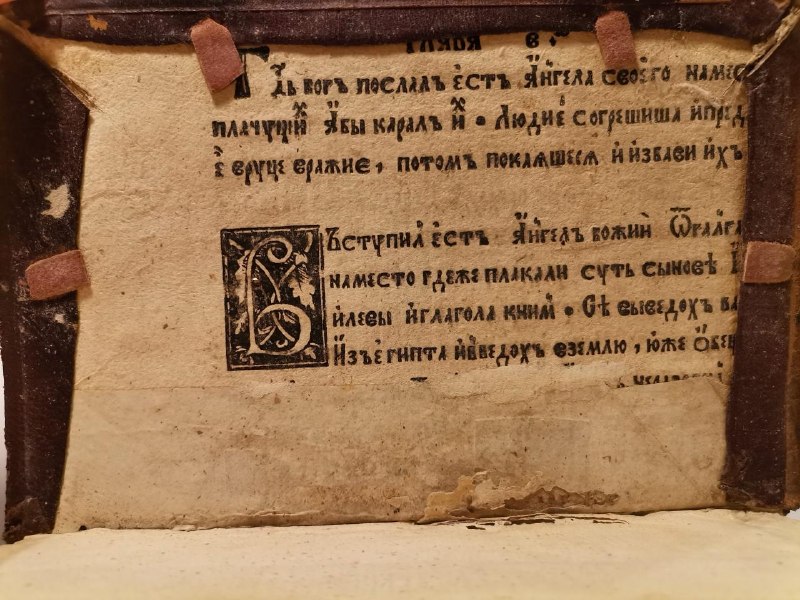 глава в҃
Гдь богъ послалъ ѐсть а҆нгела своего намес
плачущий а҆бы каралъ и҆х · Людие согрешиша и҆пред
ѐ вруце вражие, потомъ покаяшеся и҆ и҆збави и҆хъ
Въступил ѐсть а҆нгелъ божий ѿгалга
наместо гдеже плакали суть сынове
и҆левы и҆глагола кним · Сѐ выведохъ ва
И҆зъ египта и҆введохъ вземлю, юже